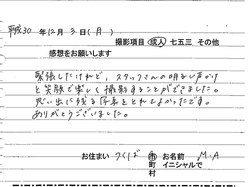 平成30年12月3日(月)
撮影項目 成人 七五三 その他
感想をお願いします
緊張したけれど、スタッフさんの明るい声かけ
と笑顔で楽しく撮影することができました。
思い出に残る写真をとれてよかったです。
ありがとうございました。
お住まい つくば 市 町 村 お名前 イニシャルで M.A